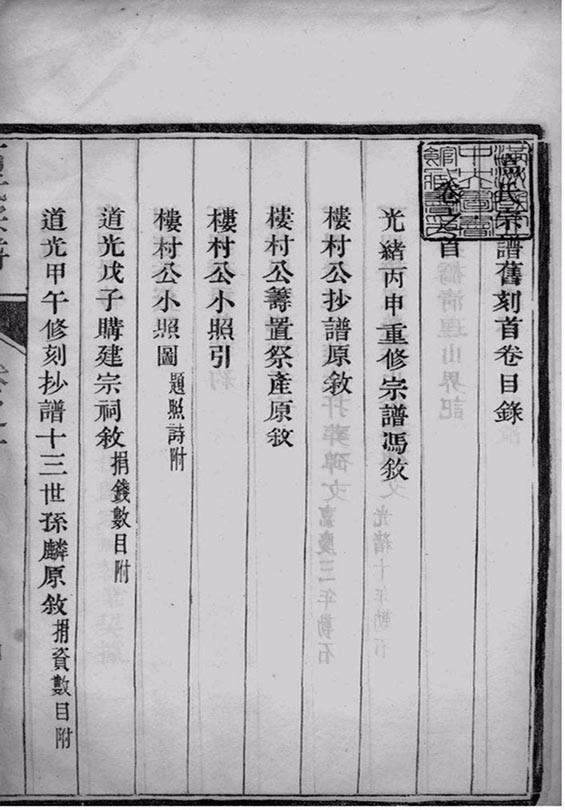 氏宗譜舊刻首卷目錄
卷之首
光緒丙申重修宗譜馮敘
樓村公抄譜原敘
樓村公籌置祭產原敘
樓村公小照引
樓村公小照圖 題照詩附
道光戊子購建宗祠敘 捐錢數目附
道光甲午修刻抄譜十三世孫麟原敘 捐資數目附